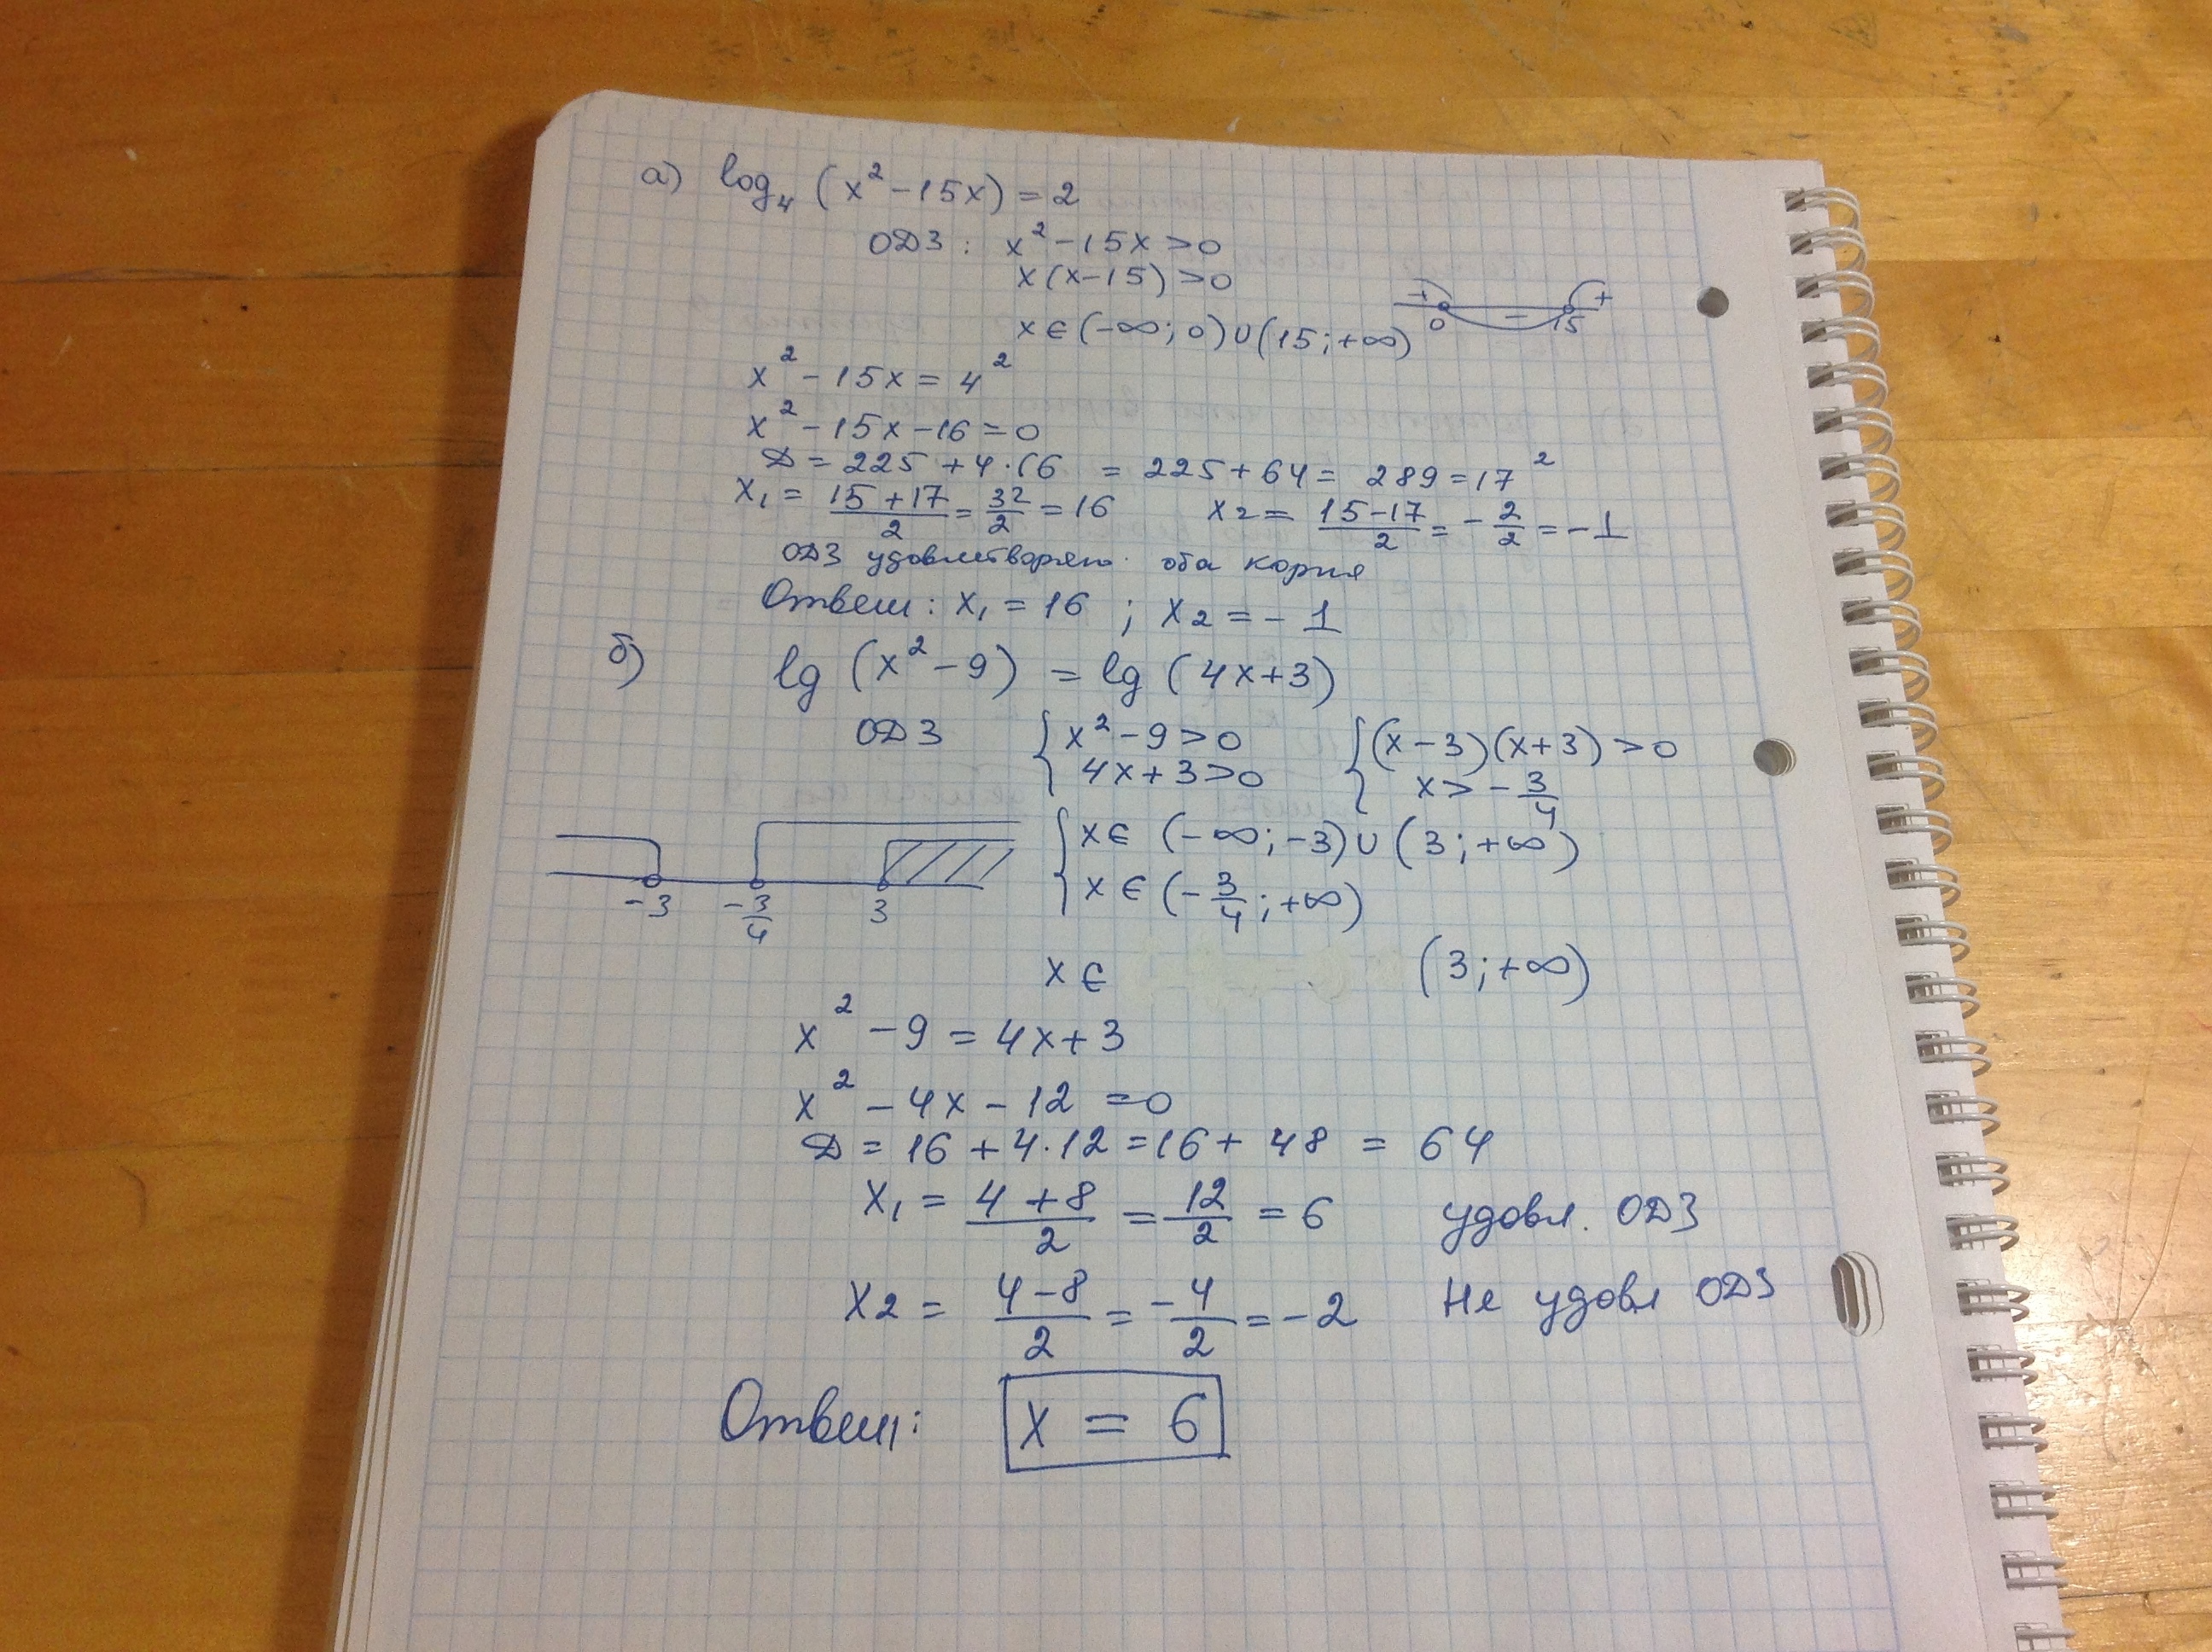 а) log₄ (x² - 15x) = 2
ОДЗ: x² - 15x > 0
x(x - 15) > 0
+ 0 - 15 +
x ∈ (-∞; 0) ∪ (15; +∞)
x² - 15x = 4²
x² - 15x - 16 = 0
D = 225 + 4·16 = 225 + 64 = 289 = 17²
x₁ = (15 + 17)/2 = 32/2 = 16 x₂ = (15 - 17)/2 = -2/2 = -1
ОДЗ удовлетворяю оба корня
Ответ: x₁ = 16 ; x₂ = -1
б) lg (x² - 9) = lg (4x + 3)
ОДЗ { x² - 9 > 0 { (x - 3)(x + 3) > 0
4x + 3 > 0 x > -3/4
{ x ∈ (-∞; -3) ∪ (3; +∞)
x ∈ (-3/4; +∞)
-3 -3/4 3
x ∈ (3; +∞)
x² - 9 = 4x + 3
x² - 4x - 12 = 0
D = 16 + 4·12 = 16 + 48 = 64
x₁ = (4 + 8)/2 = 12/2 = 6 удовл. ОДЗ
x₂ = (4 - 8)/2 = -4/2 = -2 Не удовл ОДЗ
Ответ: x = 6